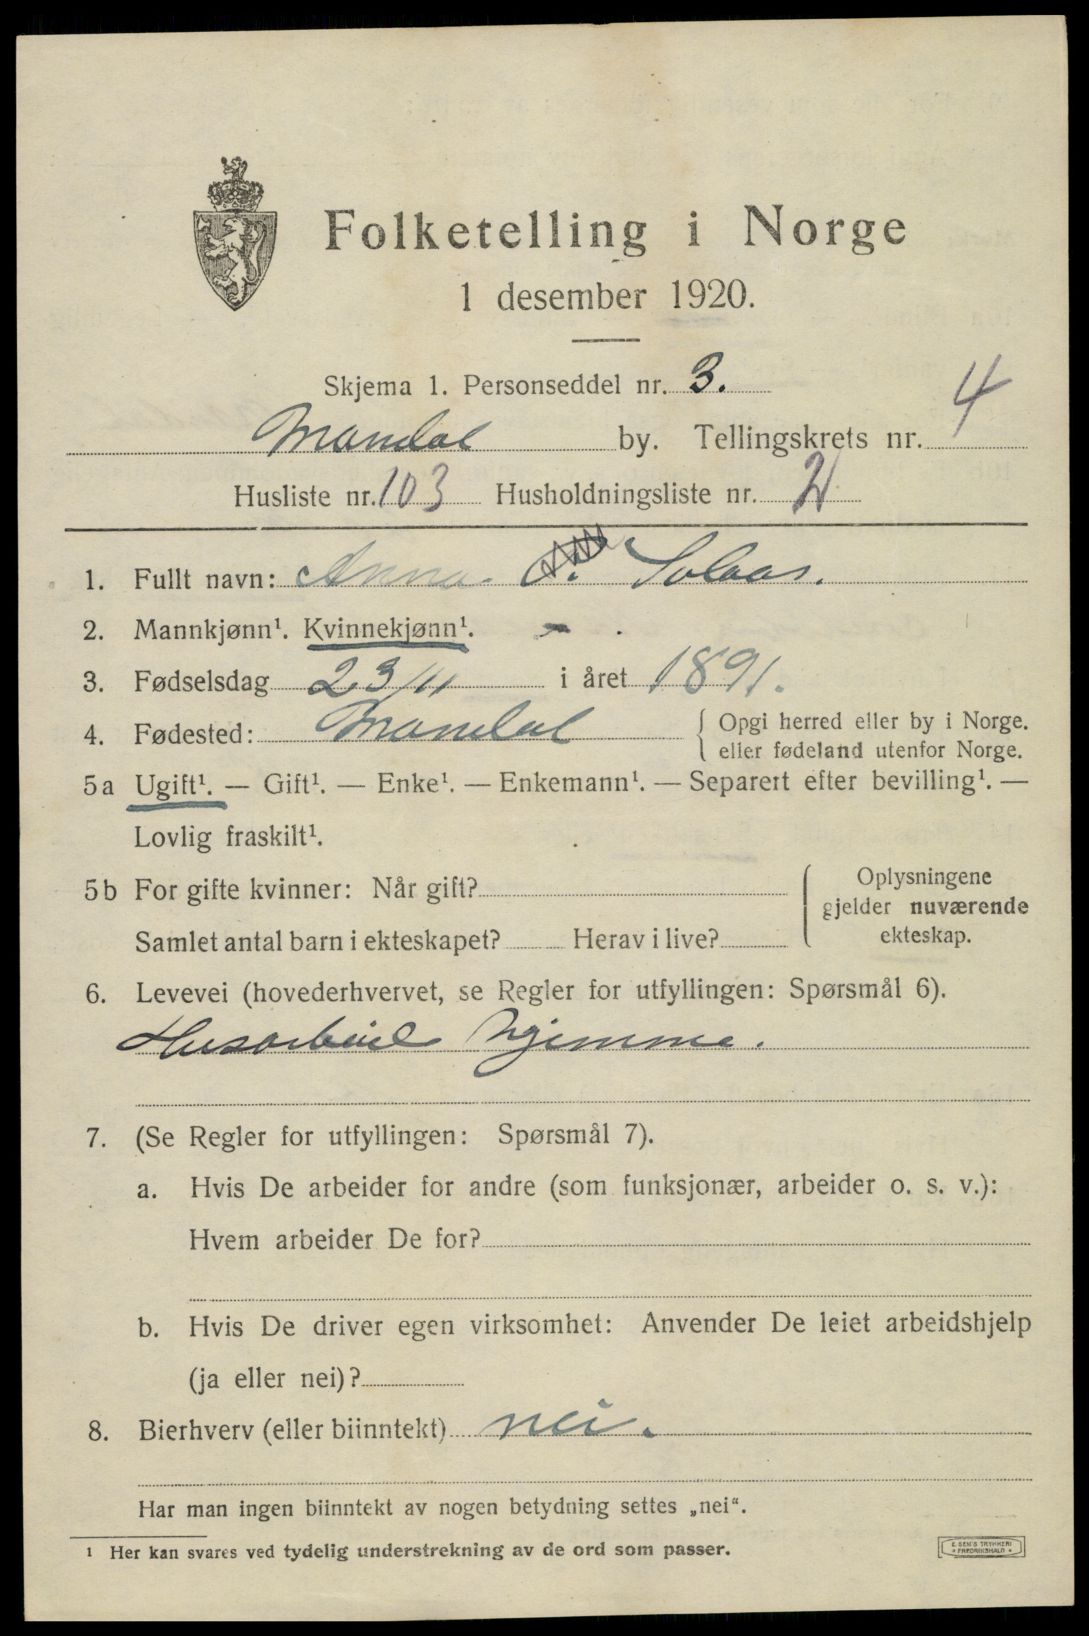 Folketelling i Norge
1 desember 1920.
Skjema 1. Personseddel nr. 3.
Mandal by. Tellingskrets nr. 4
Husliste nr. 103 Husholdningsliste nr. 2
1. Fullt navn: Anna Solaas.
2. Mannkjønn¹. Kvinnekjønn¹.
3. Fødselsdag 23/11 i året 1891.
4. Fødested: Mandal { Opgi herred eller by i Norge.
eller fødeland utenfor Norge.
5a Ugift¹. — Gift¹. — Enke¹. — Enkemann¹. — Separert efter bevilling¹. —
Lovlig fraskilt¹.
5b For gifte kvinner: Når gift?
Samlet antal barn i ekteskapet? Herav i live?
Oplysningene
gjelder nuværende
ekteskap.
6. Levevei (hovederhvervet, se Regler for utfyllingen: Spørsmål 6).
Husarbeide hjemme.
7. (Se Regler for utfyllingen: Spørsmål 7).
a. Hvis De arbeider for andre (som funksjonær, arbeider o. s. v.):
Hvem arbeider De for?
b. Hvis De driver egen virksomhet: Anvender De leiet arbeidshjelp
(ja eller nei)?
8. Bierhverv (eller biinntekt) nei.
Har man ingen biinntekt av nogen betydning settes „nei“.
¹ Her kan svares ved tydelig understrekning av de ord som passer.
E. SEM'S TRYKKERI
FREDRIKSHALD